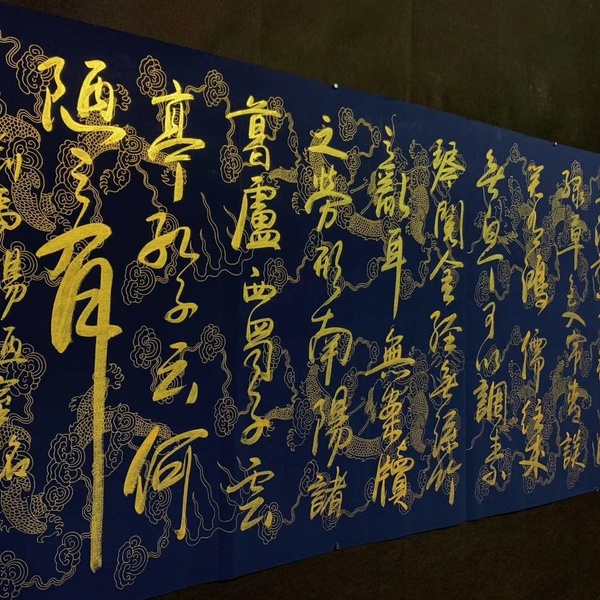 綠草色入帘青談
笑有鴻儒往來
無白丁可以調素
琴閱金經無絲竹
之亂耳無案牘
之勞形南陽諸
葛廬西蜀子雲
亭孔子云何
陋之有
劉禹錫陋室銘